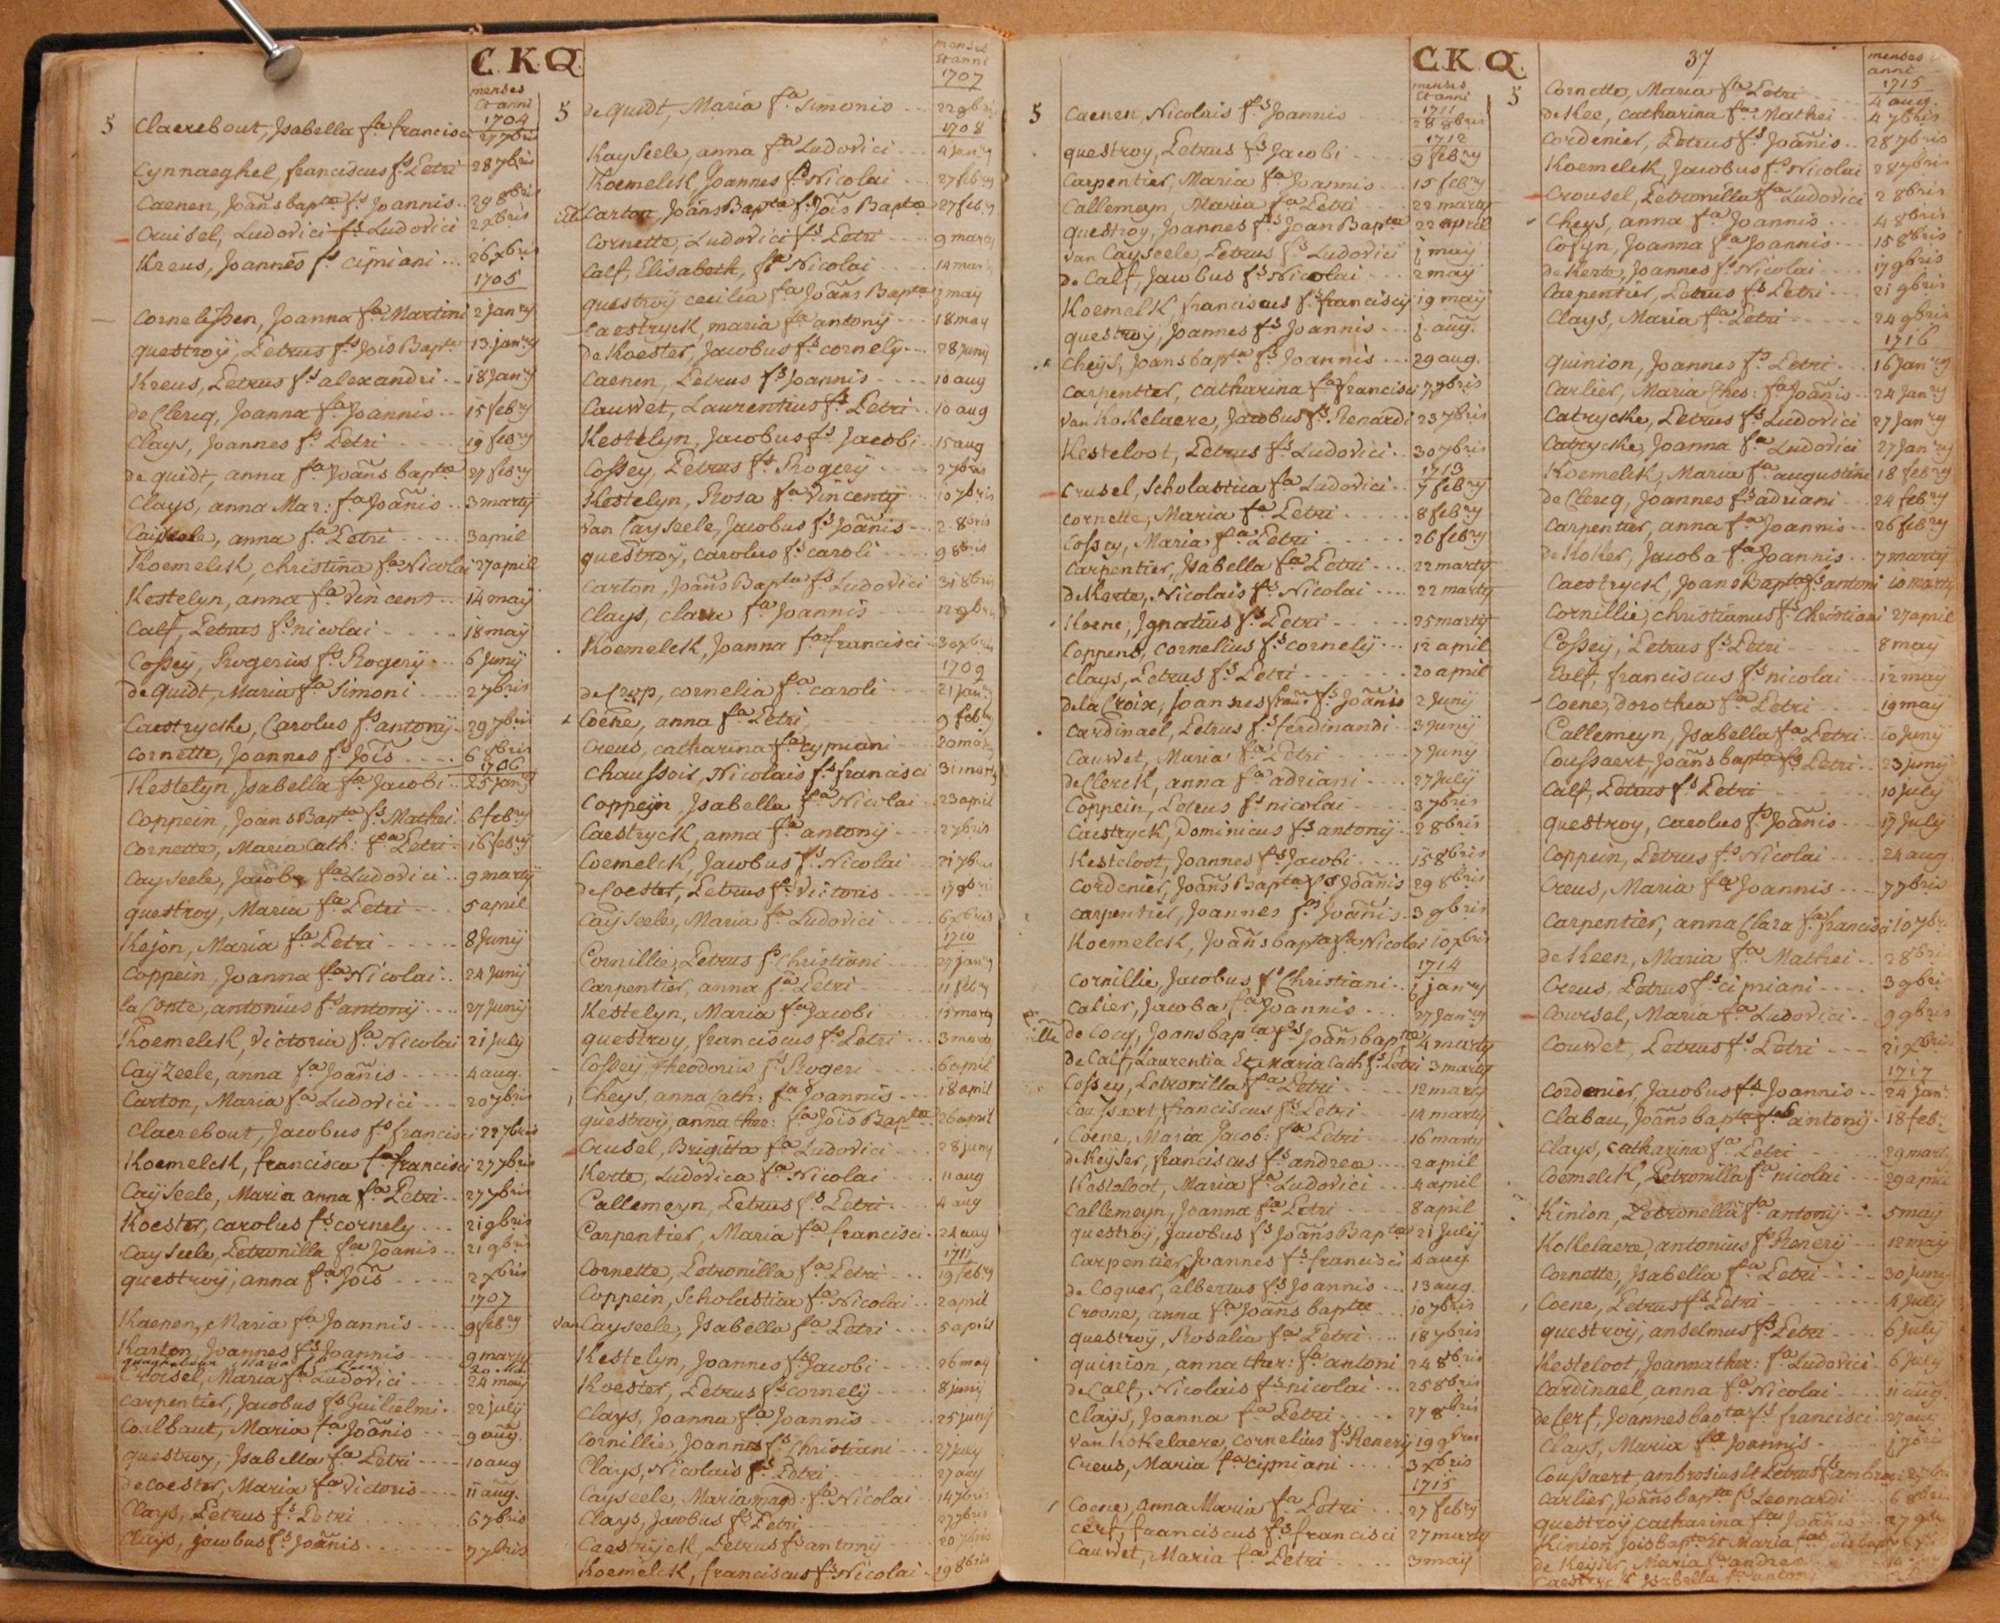 C.K.Q.
menses
Et anni
1704
5 Claerebout, Isabella fa francisci 27 7bris
Cynnaeghel, franciscus fs Petri 28 7bris
Caenen, Joãns bapta fs Joannis 29 8bris
Cruisel, Ludovici fs Ludovici
Kreus, Joannes fs cipriani 26 xbris
1705
Cornelissen, Joanna fa Martini 2 Janry
questroÿ, Petrus fs Jois Bapta 13 janry
Kreus, Petrus fs alexandri 18 Janry
de Clercq, Joanna fa Joannis 15 febry
Claÿs, Joannes fs Petri 19 febry
de quidt, anna fa Joãns bapta 27 febry
Claÿs, anna Mar: fa Joãnis 3 martÿ
Caiseele, anna fa Petri 3 april
Koemelck, christina fa Nicolai 27 april
Kestelyn, anna fa Vincent 14 maÿ
Calf, Petrus fs nicolai 18 maÿ
Cossey, Rogerius fs Rogerÿ 6 Junÿ
de Quidt, Maria fa Simoni 2 7bris
Caestrycke, Carolus fs antonÿ 29 7bris
Cornette, Joannes fs Jois 6 8bris
1706
Kestelyn, Isabella fa Jacobi 25 Janry
Coppein, Joãns Bapta fs Mathei 6 febry
Cornette, Maria Cath: fa Petri 16 febry
Caÿseele, Jacoba fa Ludovici 9 martÿ
questroy, Maria fa Petri 5 april
Kejon, Maria fa Petri 8 Junÿ
Coppein, Joanna fa Nicolai 24 Junÿ
la Conte, antonius fs antonÿ 27 Junÿ
Koemelck, Victoria fa Nicolai 21 july
CaÿZeele, anna fa Joãnis 4 aug.
Carton, Maria fa Ludovici 20 7bris
Claerebout, Jacobus fs francisci 22 7bris
Koemelck, francisca fa francisci 27 7bris
Caÿseele, Maria anna fa Petri 27 7bris
Koester, carolus fs cornely 21 9bris
Cayseele, Petronilla fa Joanis 21 9bri
questroÿ, anna fa Jois 2 xbris
1707
Kaenen, Maria fa Joannis 9 febry
Karton, Joannes fs Joannis 9 marty
Croisel, Maria fa Ludovici 24 maÿ
Carpentier, Jacobus fs Guilielmi 22 julÿ
Coulbaut, Maria fa Joãnis 9 aug.
questroy, Isabella fa Petri 10 aug
de Coester, Maria fa Victoris 11 aug.
Clays, Petrus fs Petri 6 7bris
Clays, jacobus fs Joãnis 7 7bris
menses
Et anni
1707
5 de quidt, Maria fa Simonis 22 9bris
1708
KaySeele, anna fa Ludovici 4 janry
Koemelck, Joannes fs Nicolai 27 febry
Carton, Joãns Bapta fs Jois Bapta 27 febry
Cornette, Ludovici fs Petri 9 marty
Calf, Elisabeth, fa Nicolai 14 mar
questroÿ cecilia fa Joãns Bapta 1 maÿ
Caestryck maria fa antonÿ 18 may
de Koester, Jacobus fs cornely 28 junÿ
Caenen, Petrus fs Joannis 10 aug
Cauwet, Laurentius fs Petri 10 aug
Kestelyn, Jacobus fs Jacobi 15 aug
Cossey, Petrus fs Rogerÿ 2 7bris
Kestelyn, Rosa fa Vincentÿ 10 7bris
Van CaySeele, Jacobus fs Joãnis 2 8bris
questroÿ, carolus fs caroli 9 8bris
Carton, Joãns Bapta fs Ludovici 31 8bris
Clays, clara fa Joannis 12 9bris
Koemelck, Joanna fa francisci 30 xbris
1709
de Crop, cornelia fa caroli 21 jan
Coene, anna fa Petri 9 febry
Creus, catharina fa cypriani 20 mar
Chaussois, Nicolais fs francisci 31 marty
Coppeyn, Isabella fa Nicolai 23 april
Caestryck, anna fa antonÿ 2 7bris
Coemelck, Jacobus fs Nicolai 21 7bris
de Coester, Petrus fs Victoris 17 8bri
CaySeele, Maria fa Ludovici 6 xbris
1710
Cornillie, Petrus fs Christiani 27 janry
Carpentier, anna fa Petri 11 febry
Kestelyn, Maria fa Jacobi 15 marty
questroy, franciscus fs Petri 3 marty
Cossey, Theodoria fs Rogeri 6 april
Cheys, anna Cath: fa Joannis 18 april
questroÿ, anna ther: fa Jois Bapta 26 april
Crusel, Brigitta fa Ludovici 28 junÿ
Kerte, Ludovica fa Nicolai 11 aug
Callemeyn, Petrus fs Petri 4 aug
Carpentier, Maria fa francisci 24 aug
1711
Cornette, Petronilla fa Petri 19 febry
Coppein, Scholastica fa Nicolai 2 april
van Cayseele, Isabella fa Petri 5 april
Kestelyn, Joannes fs Jacobi 26 may
Koester, Petrus fs cornelÿ 8 junÿ
Clays, Joanna fa Joannis 25 junÿ
Cornillie, Joannes fs Christiani 27 july
Clays, Nicolais fs Petri 27 aug
Cayseele, Maria magd: fa Nicolai 14 7bris
Clays, Jacobus fs Petri 27 7bris
Caestryck, Petrus fs antonÿ 20 7bris
Koemelck, franciscus fs Nicolai 19 8bris
C.K.Q.
menses
Et anni
1711
5 Caenen, Nicolais fs Joannis 28 8bris
1712
questroy, Petrus fs Jacobi 9 febry
Carpentier, Maria fa Joannis 15 febry
Callemeyn, Maria fa Petri 22 marty
questroy, Joannes fs Joan Bapta 22 april
van Cayseele, Petrus fs Ludovici 1 may
de Calf, Jacobus fs Nicolai 2 maÿ
Koemelk, franciscus fs franciscÿ 19 maÿ
questroÿ, Joannes fs Joannis 1 aug.
Cheÿs, Joans bapta fs Joannis 29 aug.
Carpentier, catharina fa francisci 7 7bris
Van KoKelaere, Jacobus fs Renardi 23 7bris
Kesteloot, Petrus fs Ludovici 30 7bris
1713
Crusel, Scholastica fa Ludovici 7 febry
Cornette, Maria fa Petri 8 febry
Cossey, Maria fa Petri 26 febry
Carpentier, Isabella fa Petri 22 marty
de Kerte, Nicolais fs Nicolai 22 marty
Koene, Ignatius fs Petri 25 marty
Coppens, cornelius fs cornelÿ 12 april
Clays, Petrus fs Petri 20 april
de la Croix, Joannes franc fs Joãnis 2 Junÿ
Cardinael, Petrus fs ferdinandi 3 Junÿ
Cauwet, Maria fa Petri 7 Junÿ
de Clerck, anna fa adriani 27 Julÿ
Coppein, Petrus fs nicolai 3 7bris
Caestryck, Dominicus fs antonÿ 2 8bris
Kesteloot, Joannes fs Jacobi 15 8bris
Cordenier, Joãns Bapta fs Joãnis 29 8bris
Carpentier, Joannes fs Joãnis 3 9bris
Koemelck, Joãns bapta fs Nicolai 10 xbris
1714
Cornillie, Jacobus fs Christiani 1 janry
Calier, Jacoba fa Joannis 27 Janry
de Cocq, Joans bapta fs Joãns bapta 4 marty
de Calf, Laurentia Et Maria Cath fs Petri 3 marty
Cossey, Petronilla fa Petri 12 marty
Coussaert franciscus fs Petri 14 marty
Coene, Maria Jacob: fa Petri 16 marty
de Keyser, franciscus fs andrea 2 april
Kesteloot, Maria fa Ludovici 4 april
Callemeyn, Joanna fa Petri 8 april
questroÿ, Jacobus fs Joãns Bapta 21 Julÿ
Carpentier, Joannes fs francisci 4 aug.
de Coquer, albertus fs Joannis 13 aug.
Croone, anna fa Joãns bapta 10 7bris
questroÿ, Rosalia fa Petri 18 7bris
quinion, anna ther: fa antoni 24 8bris
de Calf, Nicolais fs nicolai 25 8bris
Claÿs, Joanna fa Petri 27 8bris
van KoKelaere, cornelius fs Renerÿ 19 9bris
Creus, Maria fa cipriani 3 xbris
1715
Coene, Anna Maria fa Petri 27 febry
Cerf, franciscus fs francisci 27 marty
Cauwet, Maria fa Petri 3 maÿ
37
menses
anni
1715
5 Cornette, Maria fa Petri 4 aug.
de Kee, catharina fa Mathei 4 7bris
Cordenier, Petrus fs Joãnis 28 7bris
Koemelck, Jacobus fs Nicolai 28 7bris
Crousel, Petronilla fa Ludovici 2 8bris
Cheys, anna fa Joannis 4 8bris
Cosyn, Joanna fa Joannis 15 8bris
de Kerte, Joannes fs Nicolai 17 9bris
Carpentier, Petrus fs Petri 21 9bris
Clays, Maria fa Petri 24 9bris
1716
quinion, Joannes fs Petri 16 Janry
Carlier, Maria thes: fa Joãnis 24 Janry
Catrycke, Petrus fs Ludovici 27 Janry
Catrycke, Joanna fa Ludovici 27 Janry
Koemelck, Maria fa augustini 18 febry
de Clercq, Joannes fs adriani 24 febry
Carpentier, anna fa Joannis 26 febry
de Koker, Jacoba fa Joannis 7 martÿ
Caestryck, Joans Bapta fs antoni 10 marty
Cornillie, christianus fs Christiani 27 april
Cossey, Petrus fs Petri 8 may
Calf, franciscus fs nicolai 12 may
Coene, dorothea fa Petri 19 may
Callemeyn, Isabella fa Petri 10 Junÿ
Coussaert, Joãns bapta fs Petri 23 junÿ
Calf, Petrus fs Petri 10 july
questroy, carolus fs Joãnis 17 July
Coppein, Petrus fs Nicolai 24 aug
Creus, Maria fa Joannis 7 7bris
Carpentier, anna Clara fa francisci 10 7bris
de Keen, Maria fa Mathei 2 8bris
Creus, Petrus fs cipriani 3 9bri
Coursel, Maria fa Ludovici 9 9bris
Couwet, Petrus fs Petri 21 xbris
1717
Cordenier, Jacobus fs Joannis 24 Jan:
Clabau, Joãns bapta fs antonÿ 18 feb.
Clays, catharina fa Petri 29 mart
Coemelck, Petronilla fa nicolai 29 april
Kinion, Petronella fa antonÿ 5 may
KoKelaere, antonius fs Renerÿ 12 may
Cornette, Isabella fa Petri 30 juny
Coene, Petrus fs Petri 4 July
questroÿ, anselmus fs Petri 6 july
Kesteloot, Joanna ther: fa Ludovici 6 july
Cardinael, anna fa Nicolai 11 aug.
de Cerf, Joannes bapta fs francisci 27 aug
Clays, Maria fa Joannis
Coussaert, ambrosius et Petrus fs ambro
Carlier, Joãns bapta fs Leonardi 6 8bris
questroÿ catharina fa Joãnis
Kinion Jois bapta et Maria
de Keyser, Maria fa andrea
Caestryck Isabella fa antoni